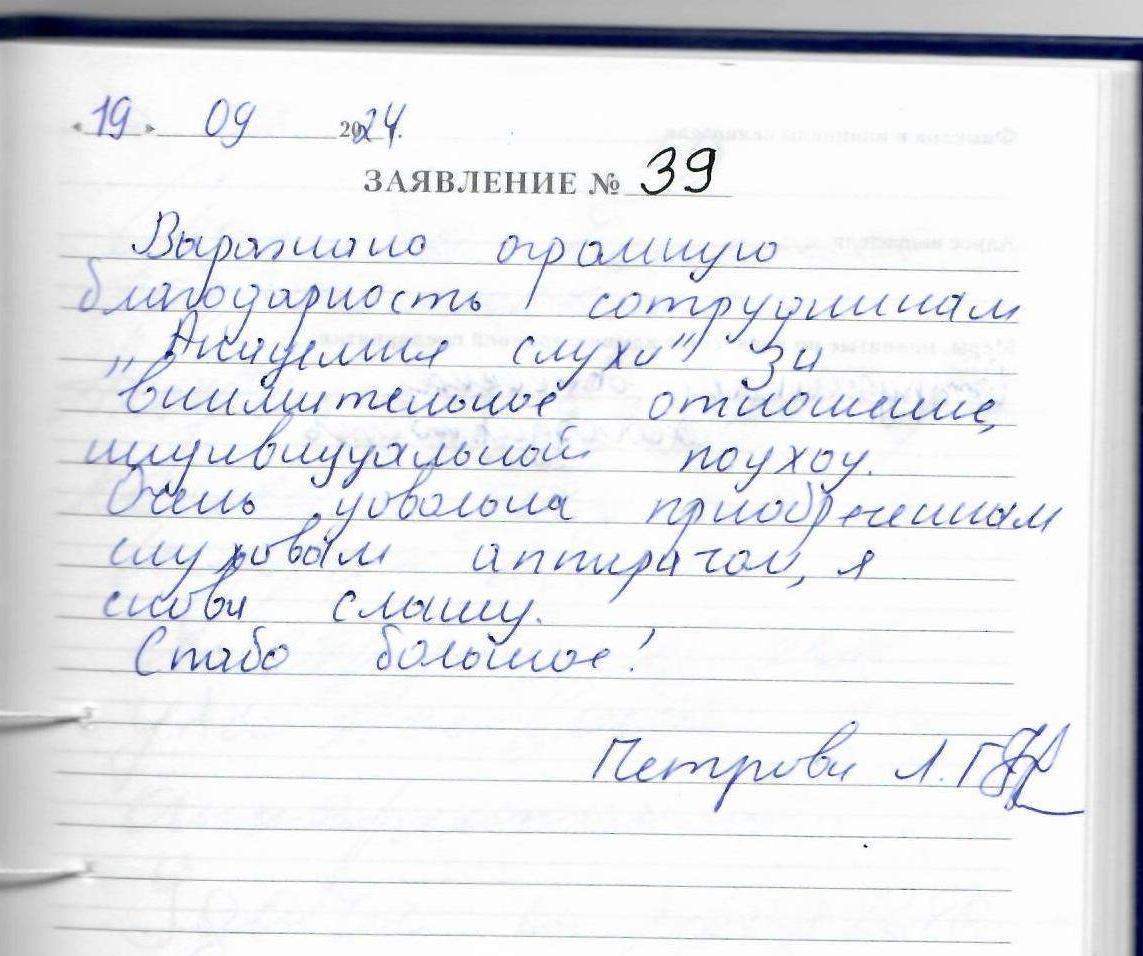 « 19 » 09 2024.
ЗАЯВЛЕНИЕ № 39
Выражаю огромную
благодарность сотрудникам
„Академия слуха" за
внимательное отношение,
индивидуальный подход.
Очень довольна приобретенным
слуховым аппаратом, я
снова слышу.
Спасибо большое!
Петрова Л.Г.